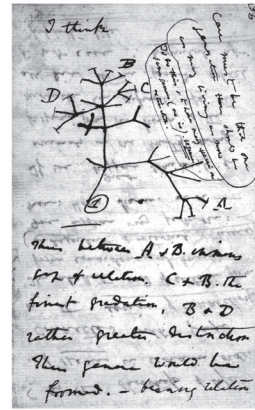 36
I think
Case must be that one
generation then should be
as many living as now
To do this & to have many species in
same genus (as is) requires
extinction.
B
C
D
A
1
Thus between A & B immense
gap of relation. C & B. the
finest gradation, B & D
rather greater distinction
Thus genera would be
formed. — bearing relation